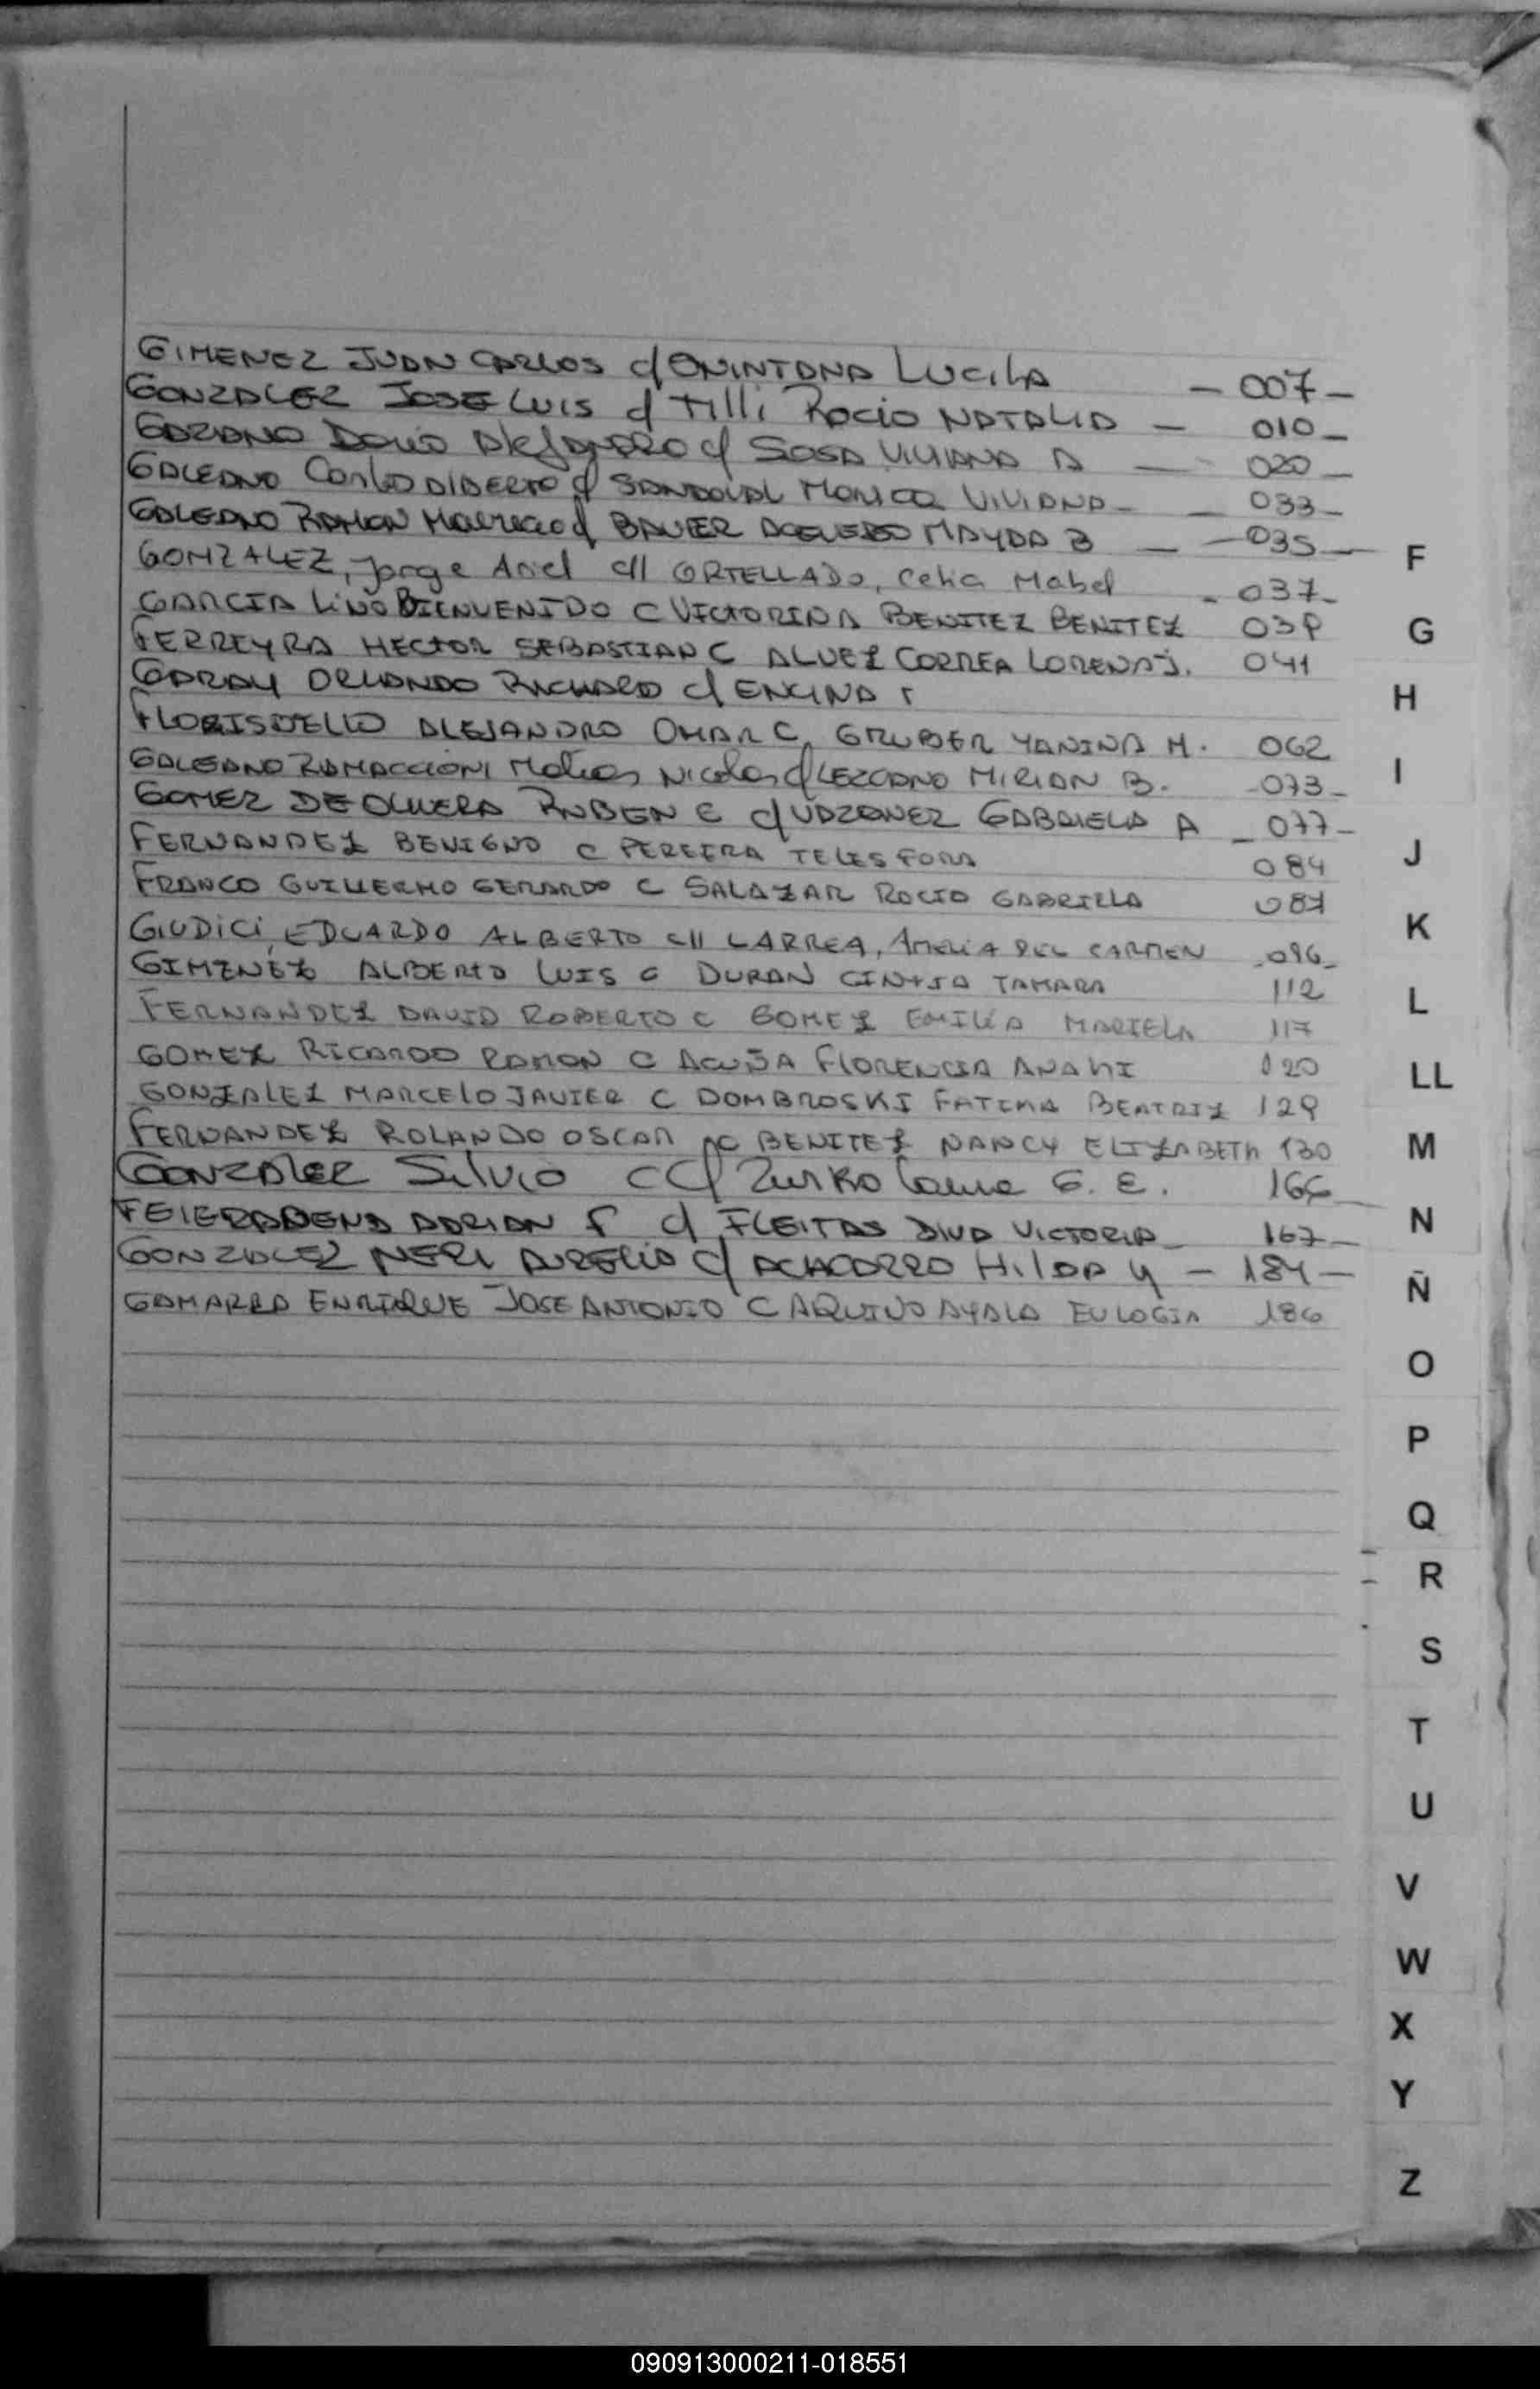 GIMENEZ JUAN CARLOS c/ QUINTANA LUCILA - 007 -
GONZALEZ JOSE LUIS c/ Tilli ROCIO NATALIA - 010 -
DARIO ALEJANDRO c/ SOSA VILIANA A - 020 -
GALEANO Carlos ALBERTO c/ SANDOVAL MONICA VIVIANA - - 033 -
GALEANO RAMON Mauricio c/ BAUER MAYDA B - - 035 -
GONZALEZ, Jorge Ariel c// ORTELLADO, Celia Mabel - 037 -
GARCIA LINO BIENVENIDO C VICTORINA BENITEZ BENITEZ
FERREYRA HECTOR SEBASTIAN C ALVEZ CORREA LORENA J. 041
GARAY ORLANDO RICHARD c/ ENCINA
ALEJANDRO OMAR C, GRUBER YANINA M. 062
GALEANO RAMACCIONI Matias Nicolas c/ LEZCANO MIRIAN B. - 073 -
GOMEZ DE OLIVERA RUBEN E c/ GABRIELA A - 077 -
FERNANDEZ BENIGNO C PEREIRA TELESFORA 084
FRANCO GUILLERMO GERARDO C SALAZAR ROCIO GABRIELA 087
GIUDICI, EDUARDO ALBERTO c// LARREA, AMELIA DEL CARMEN - 096 -
GIMENEZ ALBERTO LUIS C DURAN CINTIA TAMARA 112
FERNANDEZ DAVID ROBERTO C GOMEZ EMILIA MARIELA 117
GOMEZ RICARDO RAMON C ACUÑA FLORENCIA ANAHI 120
GONZALEZ MARCELO JAVIER C DOMBROSKI FATIMA BEATRIZ 129
FERNANDEZ ROLANDO OSCAR C BENITEZ NANCY ELIZABETH 130
GONZALEZ Silvio G. E. 166
FEIERABEND ADRIAN F c/ FLEITAS DIVA VICTORIA - 167 -
GONZALEZ NERI AURELIO c/ HILDA Y - 184 -
GAMARRA ENRIQUE JOSE ANTONIO C AQUINO AYALA EULOGIA 186
F
G
H
I
J
K
L
LL
M
N
Ñ
O
P
Q
R
S
T
U
V
W
X
Y
Z
090913000211-018551